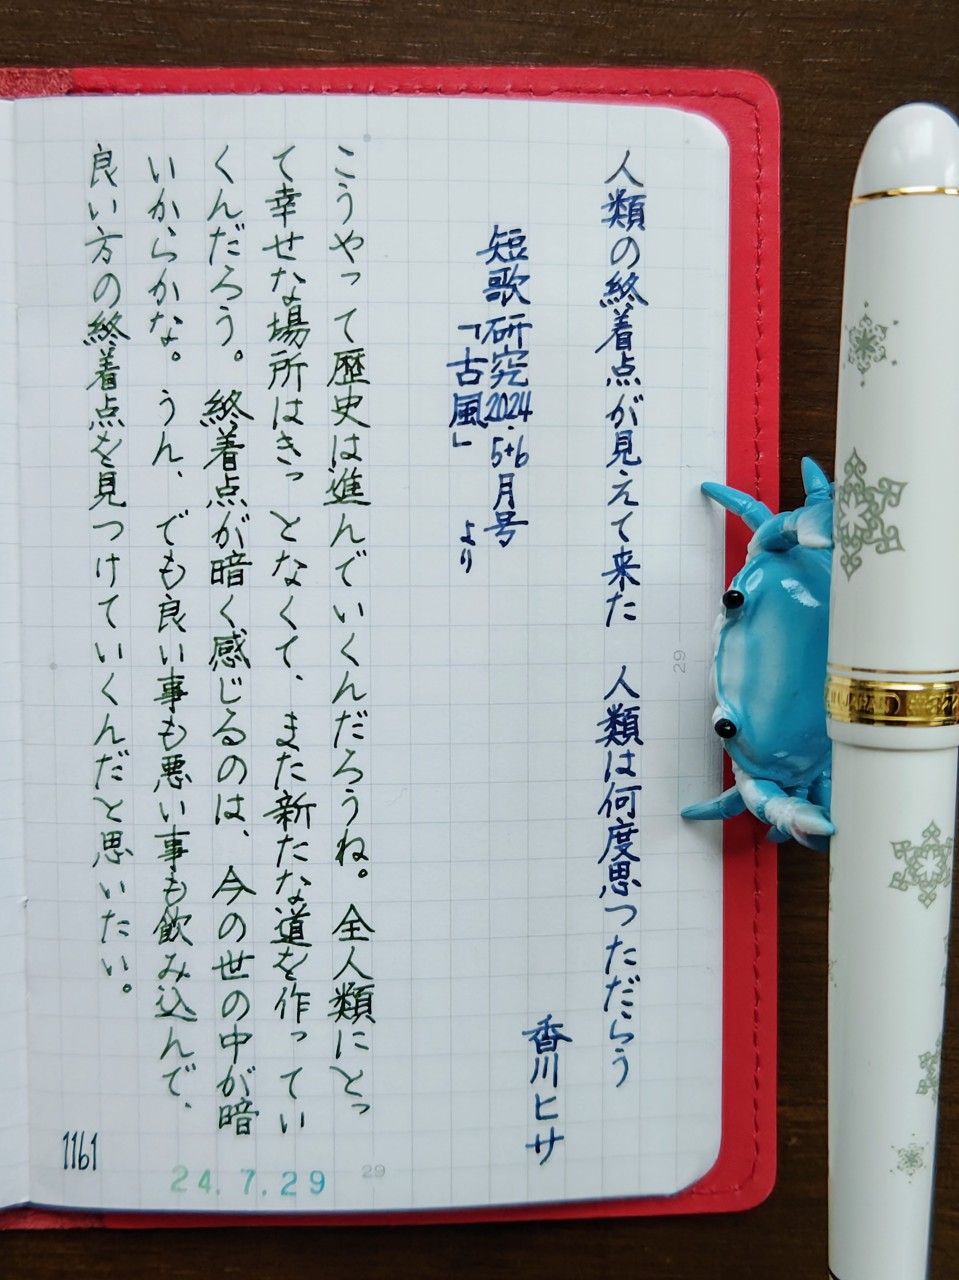 人類の終着点が見えて来た　人類は何度思つただらう
香川ヒサ
短歌研究2024.5+6月号
「古風」より
こうやって歴史は進んでいくんだろうね。全人類にとっ
て幸せな場所はきっとなくて、また新たな道を作ってい
くんだろう。終着点が暗く感じるのは、今の世の中が暗
いからかな。うん、でも良い事も悪い事も飲み込んで、
良い方の終着点を見つけていくんだと思いたい。
1161
24.7.29
29
29